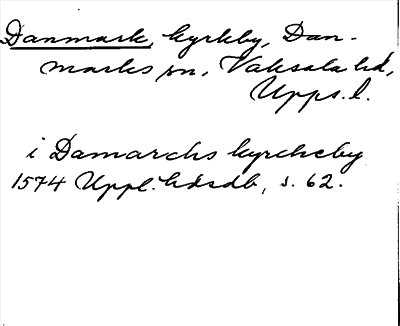 Danmark, kyrkby, Dan-
marks sn, Vaksala hd,
Upps. l.
i Damarchs kyrckeby
1574 Uppl. hdsdb, s. 62.